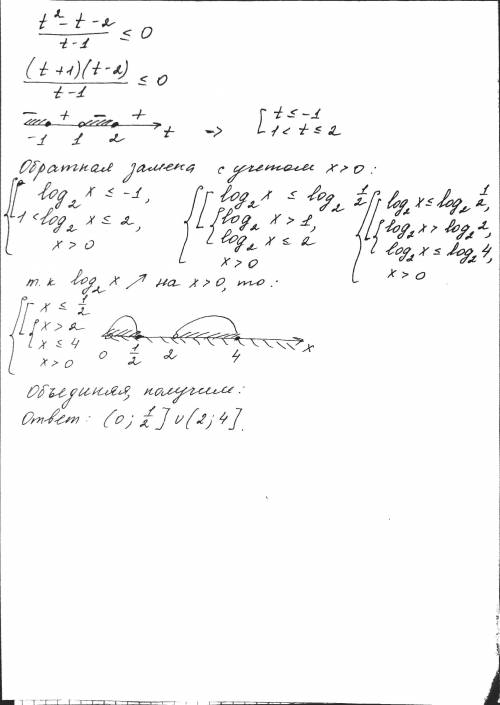 t² - t - 2 / t - 1 ≤ 0
(t + 1)(t - 2) / t - 1 ≤ 0
- + - + -1 1 2 t => [ t ≤ -1 1 < t ≤ 2
Обратная замена с учетом x > 0 :
{ [ log₂ x ≤ -1, 1 < log₂ x ≤ 2, x > 0
{ [ log₂ x ≤ log₂ 1/2 { log₂ x > 1, log₂ x ≤ 2 x > 0
{ [ log₂ x ≤ log₂ 1/2, { log₂ x > log₂ 2, log₂ x ≤ log₂ 4, x > 0
т.к log₂ x ↗ на x > 0, то :
{ [ x ≤ 1/2 { x > 2 x ≤ 4 x > 0
0 1/2 2 4 x
Объединяя, получим :
Ответ : (0 ; 1/2] ∪ (2 ; 4].